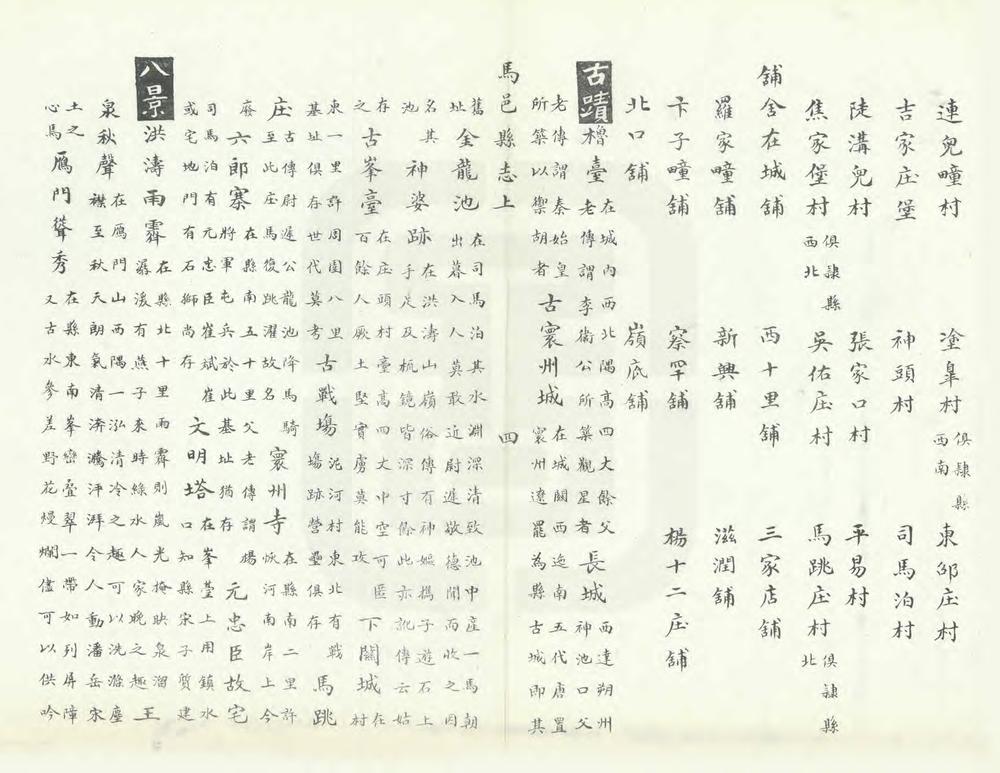 連兒疃村　塗臯村 俱隸縣西南　東邵庄村
吉家庄堡　神頭村　司馬泊村
陡溝兒村　張家口村　平易村
焦家堡村 俱隸縣西北　吳佑庄村　馬跳庄村 俱隸縣北
舖舍在城舖　西十里舖　三家店舖
羅家疃舖　新興舖　滋潤舖
卞子疃舖　察罕舖　楊十二庄舖
北口舖　嶺底舖
古蹟 櫓臺 在城內西北隅高四大餘父老傳謂李衛公所築觀星者 長城 西達朔州神池口父
老傳謂秦始皇所築以禦胡者 古寰州城 在城關西迤南五代唐置寰州遼罷為縣古城即其
馬邑縣志上　四
舊址 金龍池 在司馬泊其水淵深清致池中產一馬朝出暮入人莫敢近尉遲敬德聞而收之因
名其池 神婆跡 在洪濤山嶺俗傳有神嫗攜子遊石上手足及梳鏡皆深寸餘此亦訛傳云姑
存之 古峯臺 在庄頭村臺高四大中空可匿百餘人厥土堅實虜莫能攻 下關城 在村
東一里許周圍八里基址俱存世代莫考 古戰塲 泥河村東北有戰塲跡營壘俱存 馬跳
庄 古傳尉遲公龍池降馬騎至此庄馬復跳濯故名 寰州寺 在縣南二里許恢河南岸上今
廢 六郎寨 在縣南五十里父老傳謂楊將軍屯兵於此基址猶存 元忠臣故宅
司馬泊有元忠臣崔斌崔或宅地門有石獅尚存 文明塔 在峯臺上用鎮水口知縣宋子質建
八景 洪濤雨霽 在縣北十里雨霽則嵐光掩映泉溜潺湲有燕子來時絲水人家晚之趣 王
泉秋聲 在鴈門山西隅一泓清冷之趣可以洗滌塵襟至秋天朗氣清渀灂泙湃今人動潘岳宋
土之心馬 鴈門聳秀 在縣東南峯巒疊翠一帶如列屏障又古水參差野花熳爛儘可以供吟